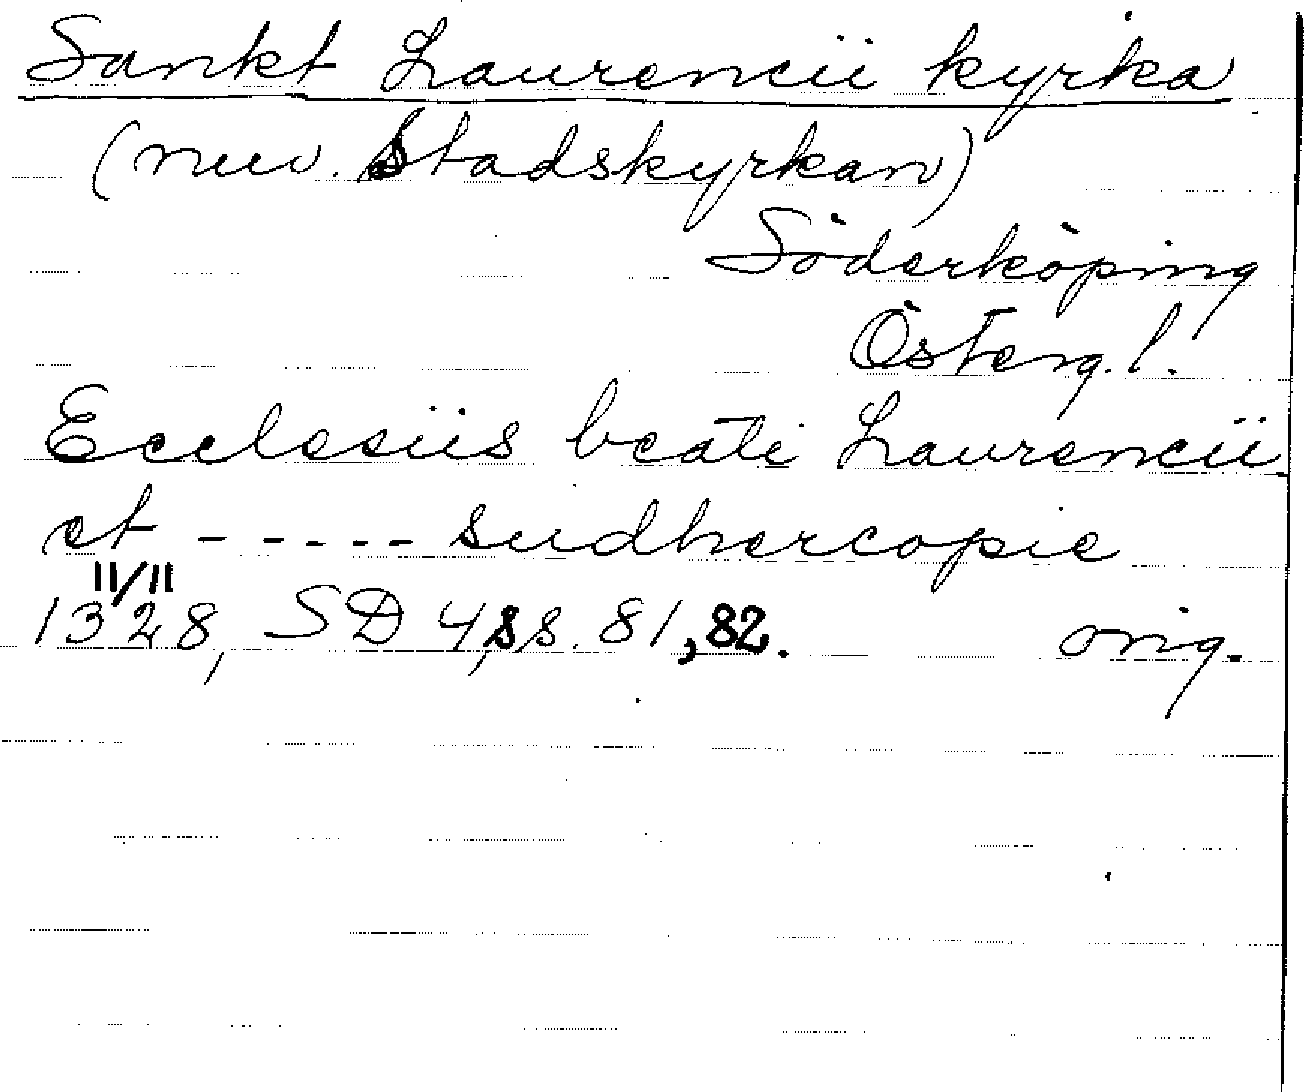 Sankt Laurencii kyrka
(nuv. Stadskyrkan)
Söderköping
Österg.l.
Ecclesiis beati Laurencii
et ----- sudhercopie
11/11
1328, SD 4, s. 81, 82. orig.